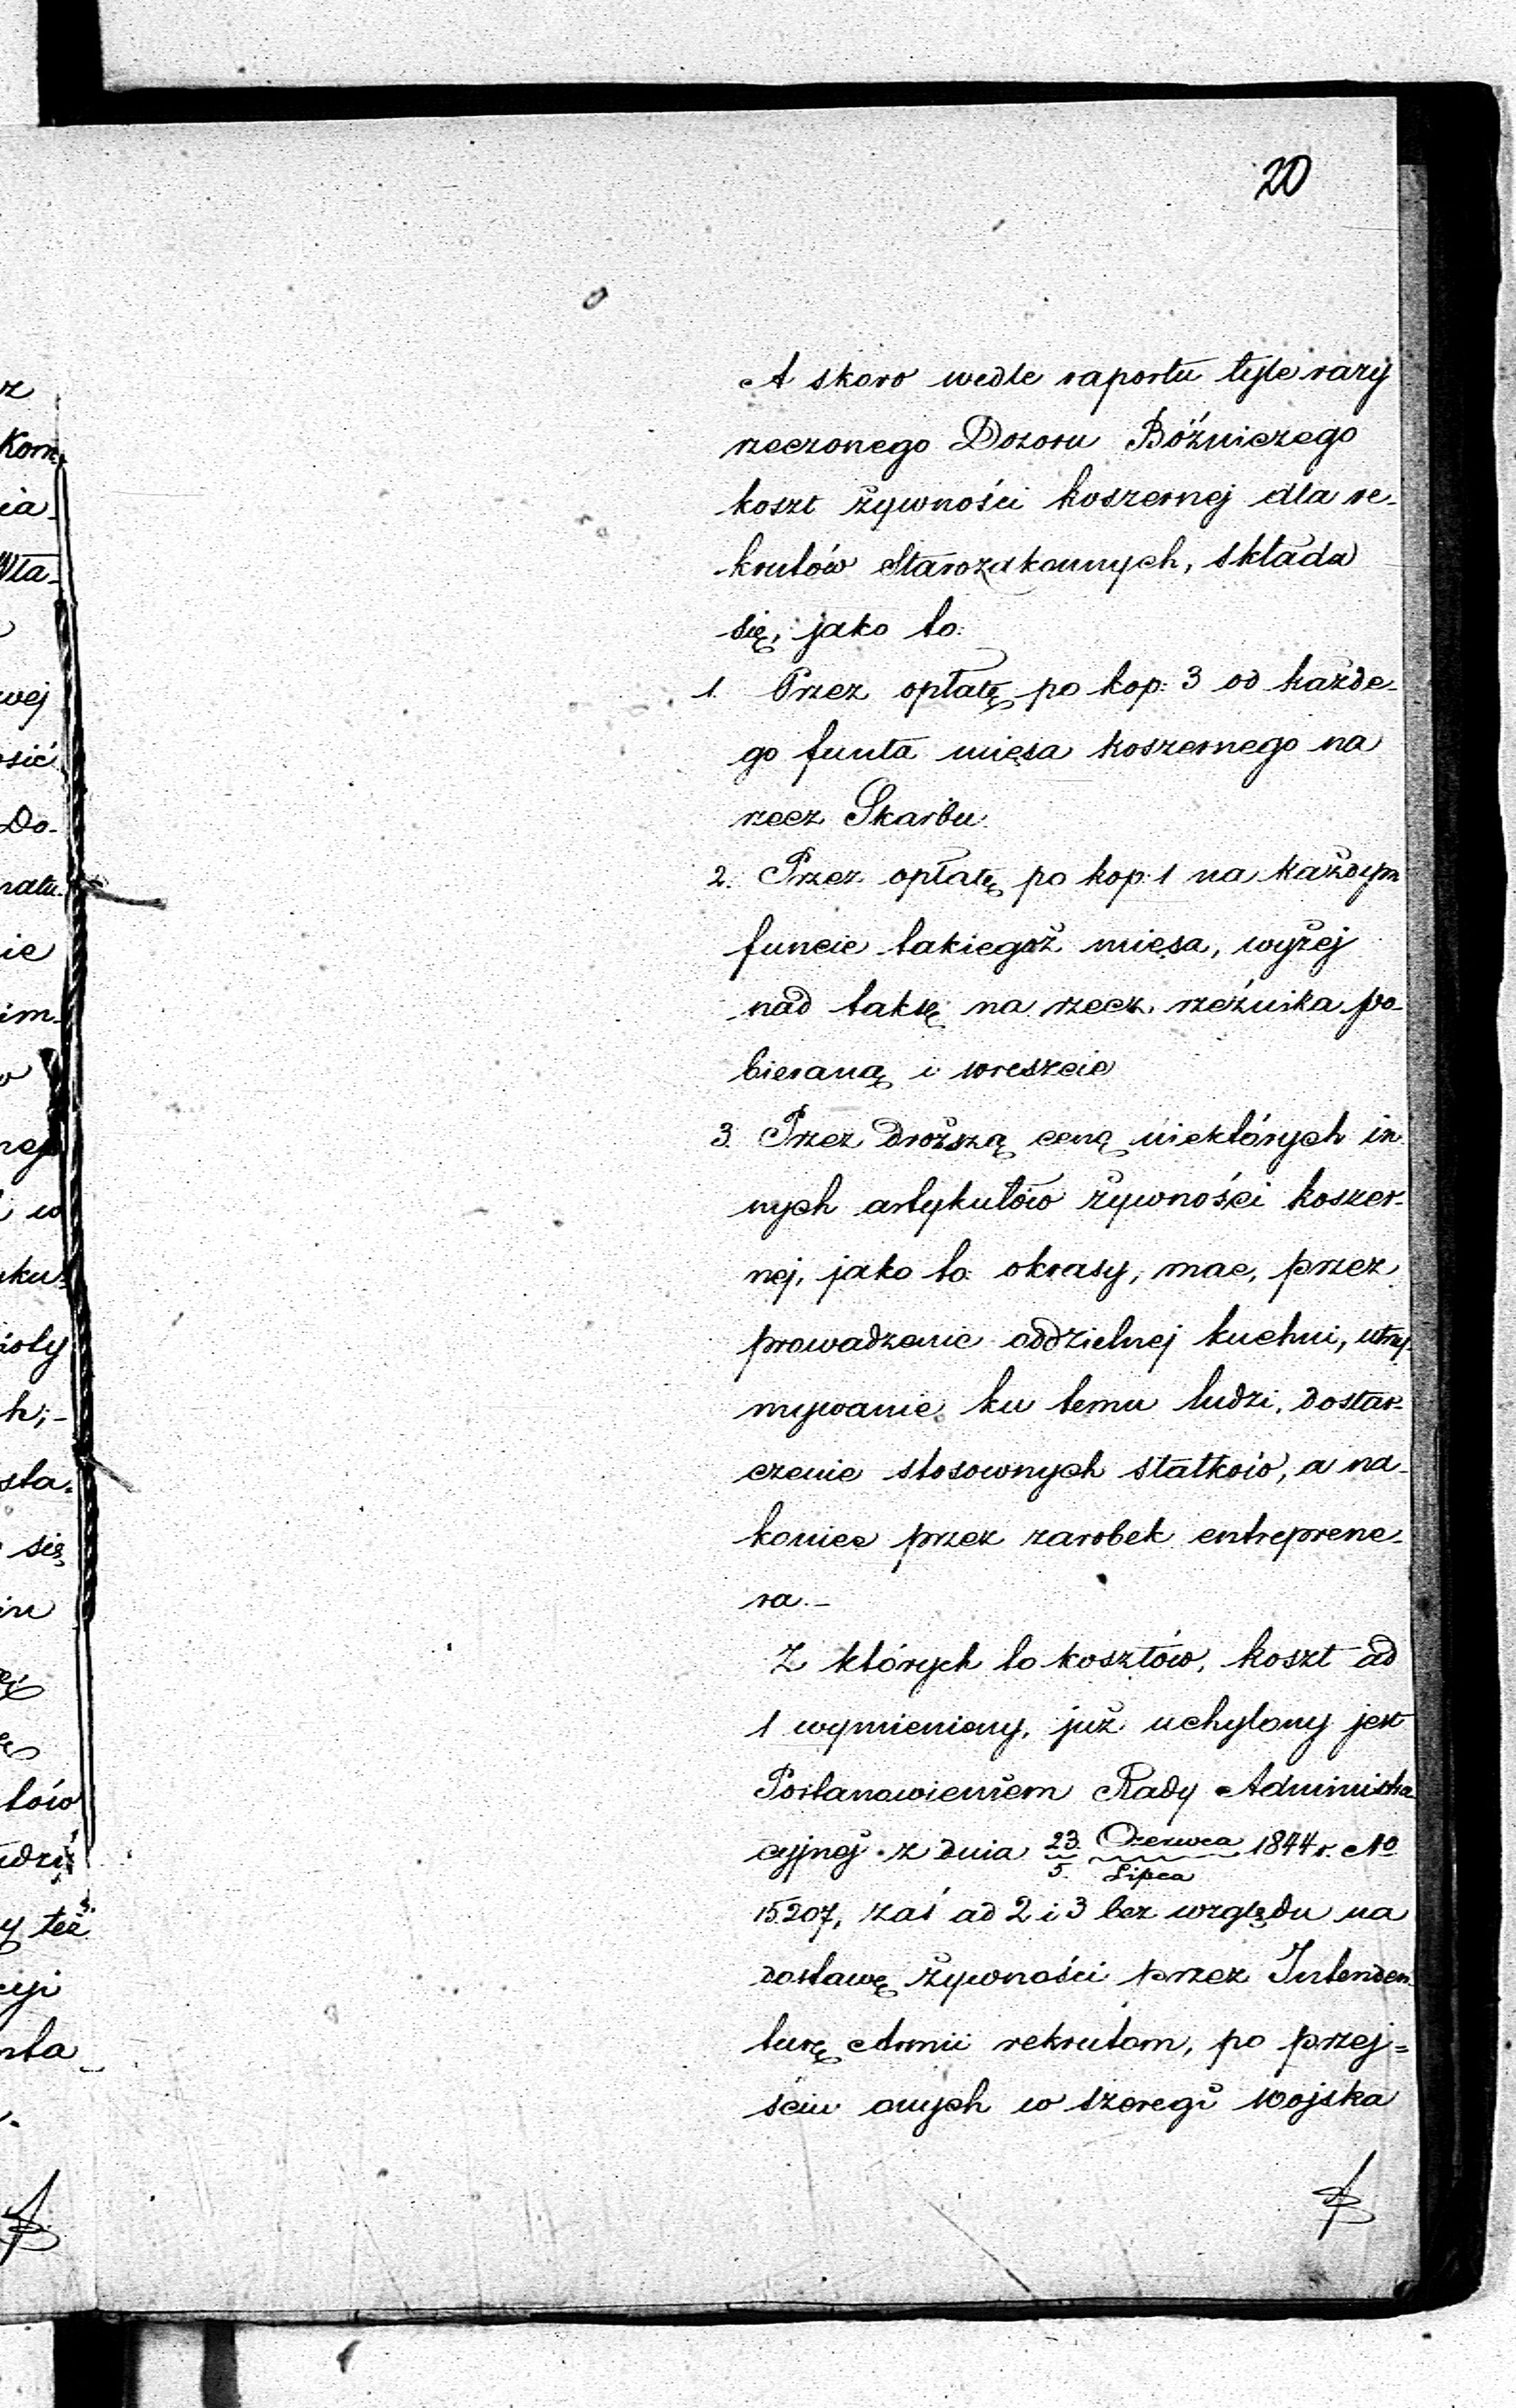 20
A skoro wedle raportu tyle razy
rzeczonego Dozoru Bóżniczego
koszt żywności koszernej dla re-
krutów Starozakonnych, składa
się, jako to:
1. Przez opłatę po kop: 3 od każde-
go funta mięsa koszernego na
rzecz Skarbu.
2. Przez opłatę po kop: 1 na każdym
funcie takiegoż mięsa, wyżej
nad taksę na rzecz rzeźnika po-
bieraną i wreszcie
3. Przez droższą cenę niektórych in-
nych artykułów żywności koszer-
nej, jako to: okrasy, mac, przez
prowadzenie oddzielnej kuchni, utrzy-
mywanie ku temu ludzi, dostar-
czenie stosownych statków, a na-
koniec przez zarobek entreprene-
ra.-
Z których to kosztów, koszt ad
1 wymieniony, już uchylony jest
Postanowieniem Rady Administra-
cyjnej z dnia 23 Czerwca / 5 Lipca 1844 r. No
15207, zaś ad 2 i 3 bez względu na
dostawę żywności przez Intenden-
turę Armii rekrutom, po przej=
ściu onych w szeregi wojska